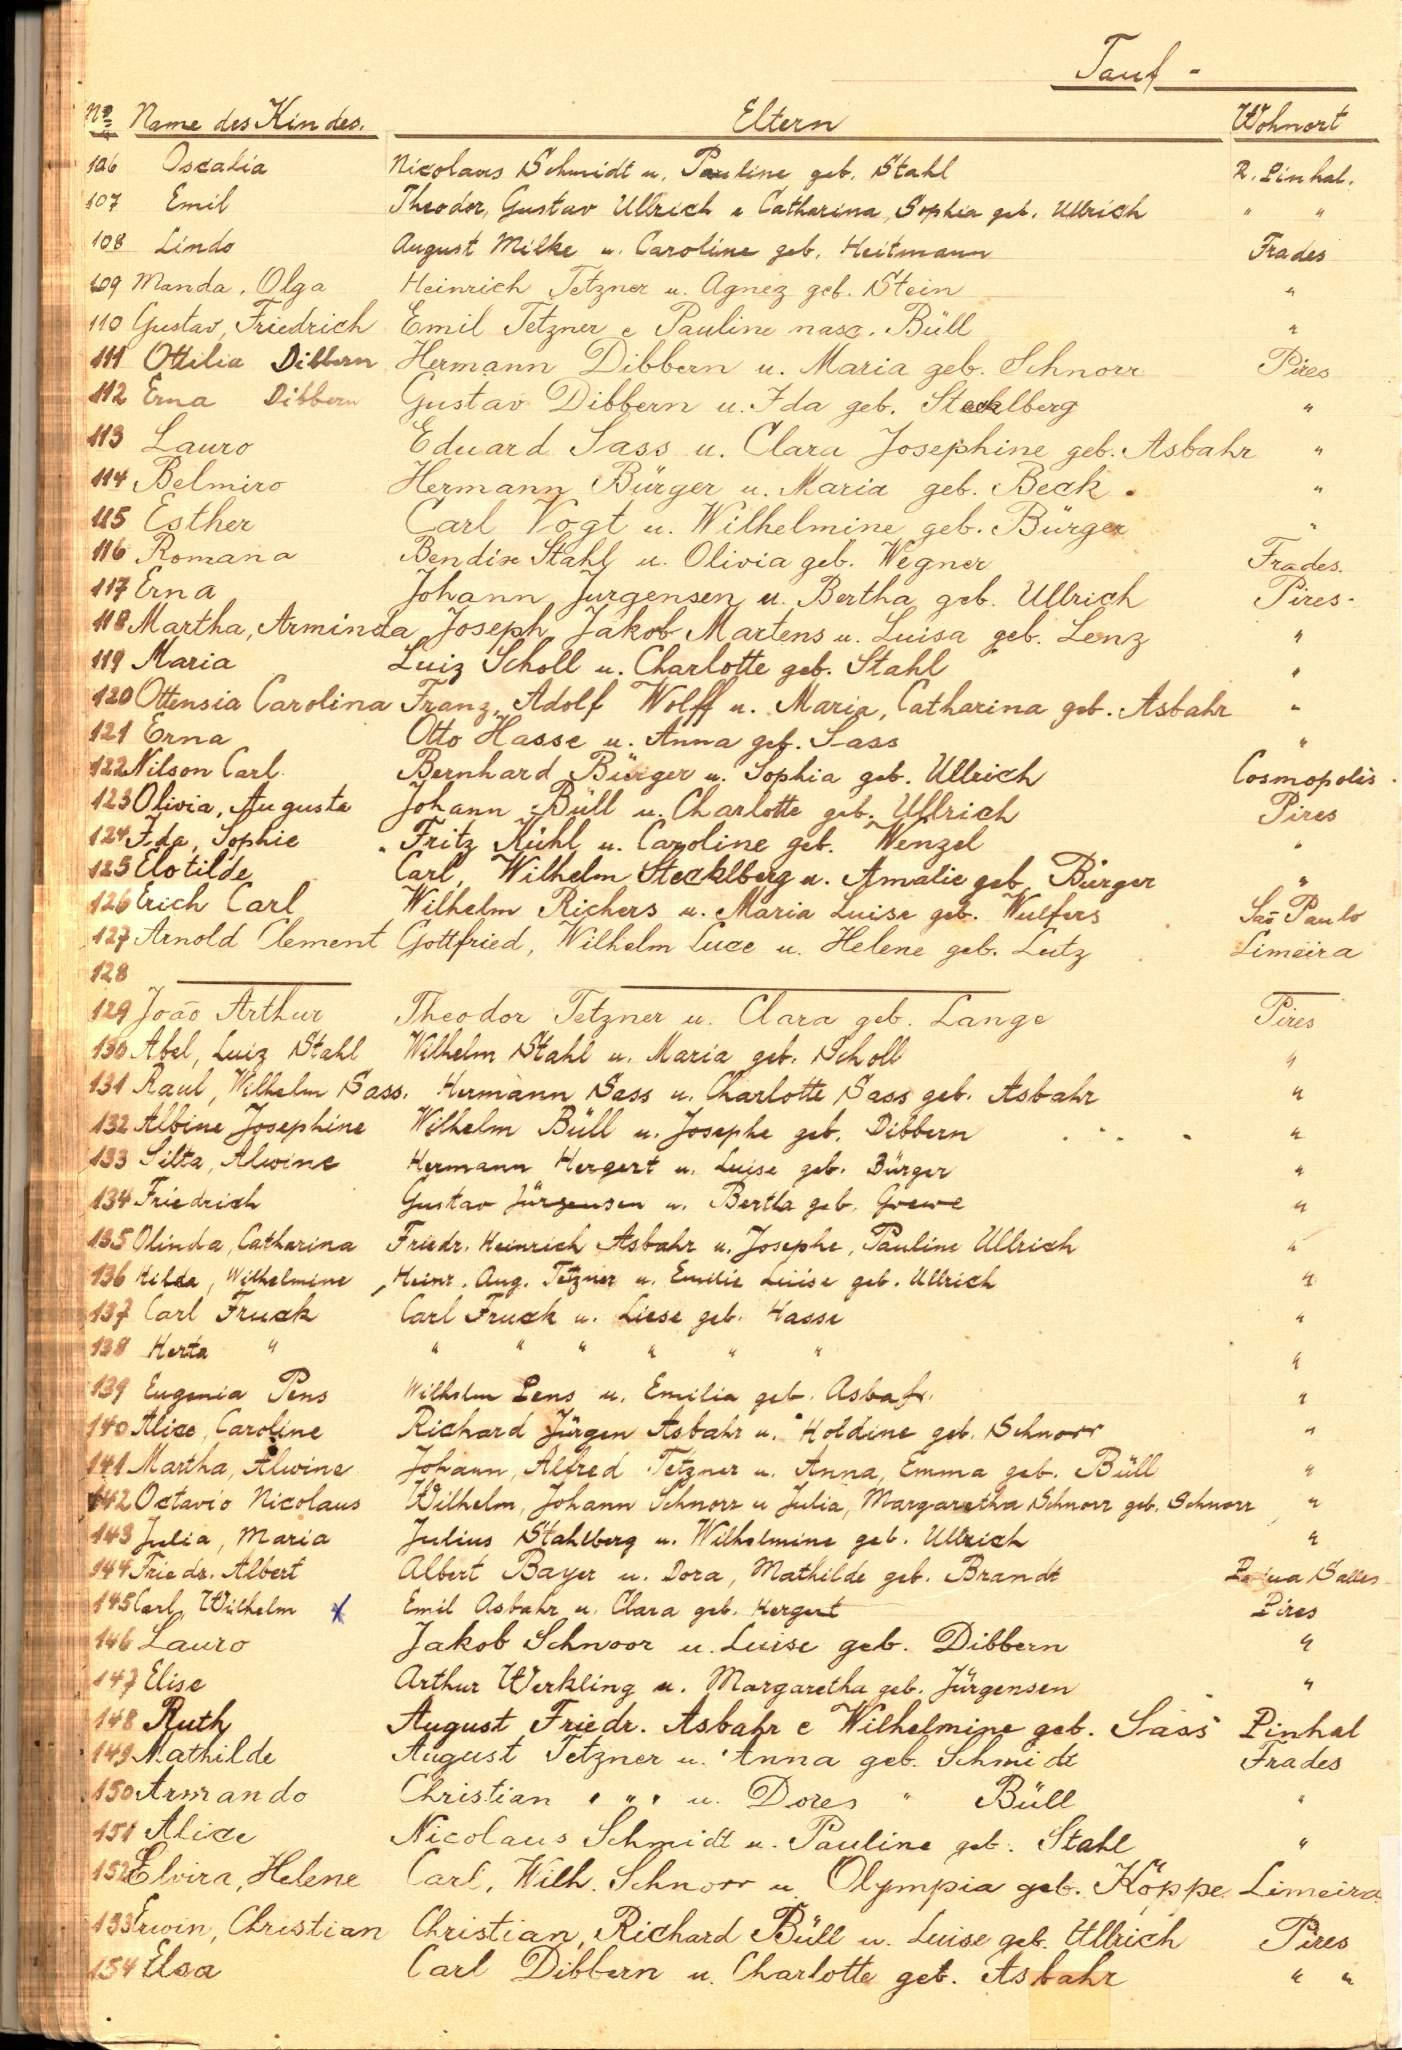 Tauf -
No Name des Kindes. Eltern Wohnort
106 Oscalia Nicolaus Schmidt u. Pauline geb. Stahl R. Pinhal.
107 Emil Theodor, Gustav Ullrich e Catharina, Sophia geb. Ullrich " "
108 Lindo August Milke u. Caroline geb. Heitmann Frades
109 Manda, Olga Heinrich Tetzner u. Agnez geb. Stein "
110 Gustav, Friedrich Emil Tetzner e Pauline nasc. Büll "
111 Ottilia Dibbern Hermann Dibbern u. Maria geb. Schnorr Pires
112 Erna Dibbern Gustav Dibbern u. Ida geb. Stecklberg "
113 Lauro Eduard Sass u. Clara Josephine geb. Asbahr "
114 Belmiro Hermann Bürger u. Maria geb. Beck. "
115 Esther Carl Vogt u. Wilhelmine geb. Bürger "
116 Romana Bendix Stahl u. Olivia geb. Wegner Frades.
117 Erna Johann Jurgensen u. Bertha geb. Ullrich Pires-
118 Martha, Arminda Joseph Jakob Martens u. Luisa geb. Lenz "
119 Maria Luiz Scholl u. Charlotte geb. Stahl "
120 Ottensia Carolina Franz, Adolf Wolff u. Maria, Catharina geb. Asbahr "
121 Erna Otto Hasse u. Anna geb. Sass "
122 Nilson Carl. Bernhard Bürger u. Sophia geb. Ullrich Cosmopolis.
123 Olivia, Augusta Johann Büll u. Charlotte geb. Ullrich Pires
124 Ida, Sophie Fritz Kühl u. Caroline geb. Wenzel "
125 Clotilde Carl, Wilhelm Stecklberg u. Amalie geb. Bürger "
126 Erich Carl Wilhelm Richers u. Maria Luise geb. Wulfers São Paulo
127 Arnold Clement Gottfried, Wilhelm Luce u. Helene geb. Lutz Limeira
128
129 João Arthur Theodor Tetzner u. Clara geb. Lange Pires
130 Abel, Luiz Stahl Wilhelm Stahl u. Maria geb. Scholl "
131 Raul, Wilhelm Sass. Hermann Sass u. Charlotte Sass geb. Asbahr "
132 Albine Josephine Wilhelm Büll u. Josephe geb. Dibbern "
133 Silta, Alwine Hermann Hergert u. Luise geb. Bürger "
134 Friedrich Gustav Jürgensen u. Bertha geb. Grewe "
135 Olinda, Catharina Friedr. Heinrich Asbahr u. Josephe, Pauline Ullrich "
136 Hilda, Wilhelmine, Heinr. Aug. Tetzner u. Emilie Luise geb. Ullrich "
137 Carl Fruck Carl Fruck u. Liese geb. Hasse "
138 Herta " " " " " " " "
139 Eugenia Pens Wilhelm Pens u. Emilia geb. Asbahr. "
140 Alice, Caroline Richard Jürgen Asbahr u. Holdine geb. Schnorr "
141 Martha, Alwine Johann, Alfred Tetzner u. Anna, Emma geb. Büll "
142 Octavio Nicolaus Wilhelm, Johann Schnorr u Julia, Margaretha Schnorr geb. Schnorr "
143 Julia, Maria Julius Stahlberg u. Wilhelmine geb. Ullrich "
144 Friedr. Albert Albert Bayer u. Dora, Mathilde geb. Brandt Salles
145 Carl, Wilhelm x Emil Asbahr u. Clara geb. Hergert Pires
146 Lauro Jakob Schnoor u. Luise geb. Dibbern "
147 Elise Arthur Werkling u. Margaretha geb. Jürgensen "
148 Ruth August Friedr. Asbahr e Wilhelmine geb. Sass Pinhal
149 Mathilde August Tetzner u. Anna geb. Schmidt Frades
150 Armando Christian " " " u. Dores " Büll "
151 Alice Nicolaus Schmidt u. Pauline geb. Stahl "
152 Elvira, Helene Carl, Wilh. Schnorr u. Olympia geb. Köppe Limeira
153 Erwin, Christian Christian, Richard Büll u. Luise geb. Ullrich Pires
154 Elsa Carl Dibbern u. Charlotte geb. Asbahr " "